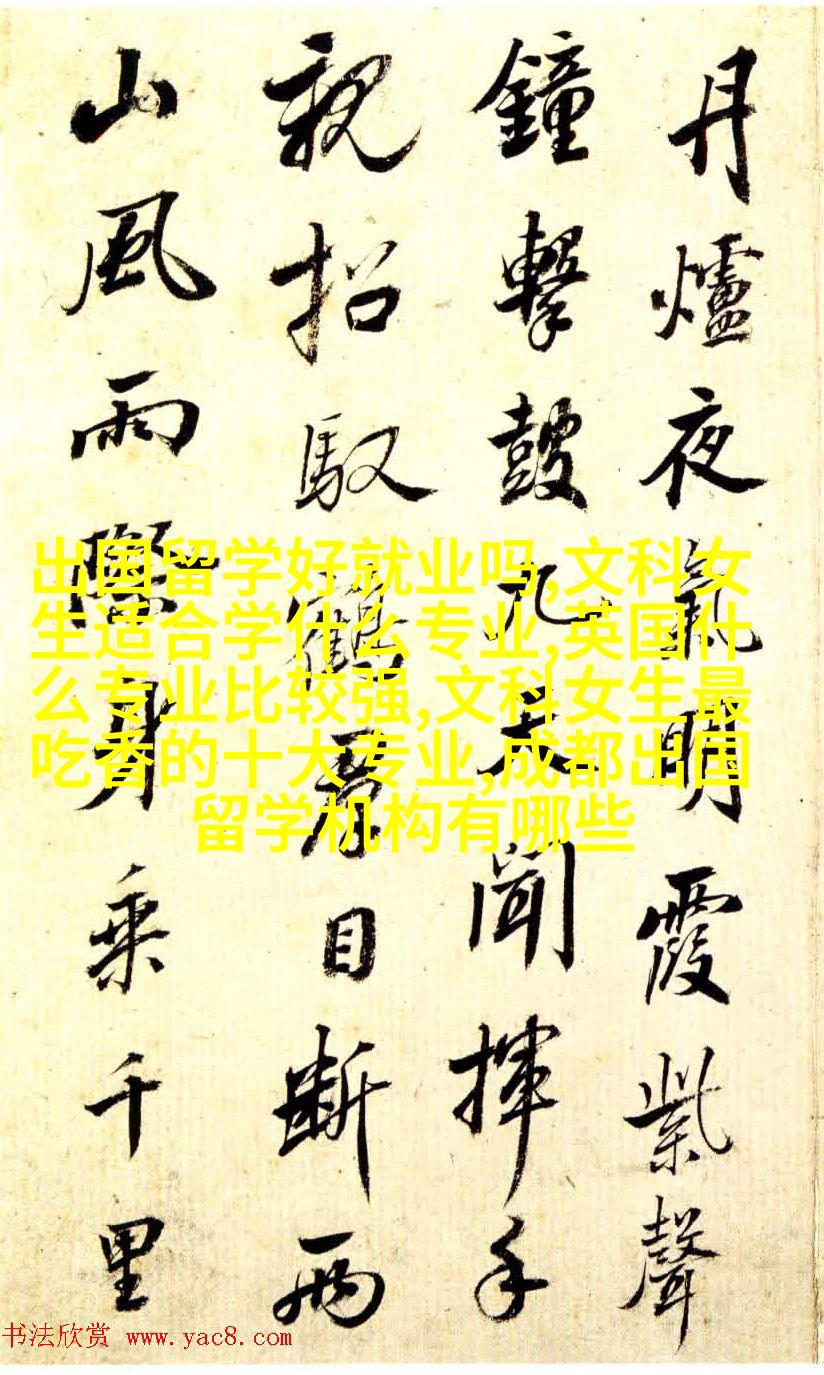 丹爐夜氣明霞紫聲
鐘擊鼓九天聞揮手
親招馭鶴君目断兩
山風雨際身乘千里
出国留学好就业吗,文科女
生适合学什么专业,英国什
么专业比较强,文科女生最
吃香的十大专业,成都出国
留学机构有哪些
书法欣赏 www.yac8.com